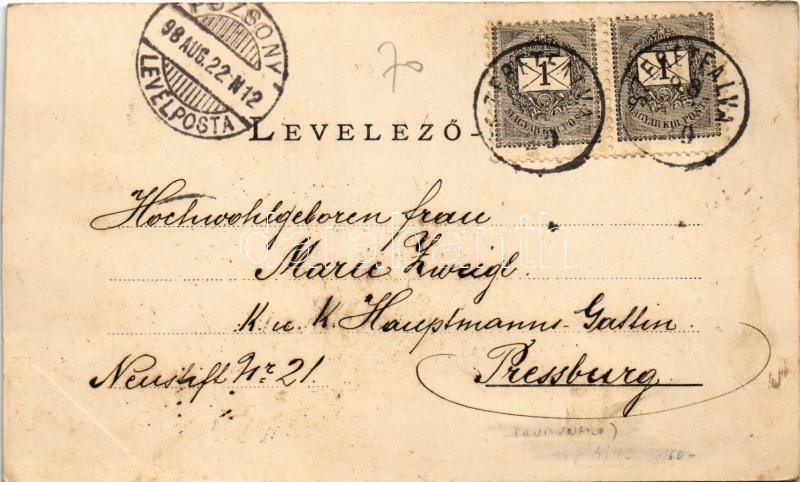 POZSONY
98 AUG. 22 N 12
LEVÉLPOSTA
70
1
MAGYAR KIR. POSTA
1
MAGYAR KIR. POSTA
LEVELEZŐ-
Hochwohlgeboren frau
Marie Zweigl.
K. u. K. Hauptmanns-Gattin.
Neustift Nr. 21.
Pressburg.
darabanth
60-